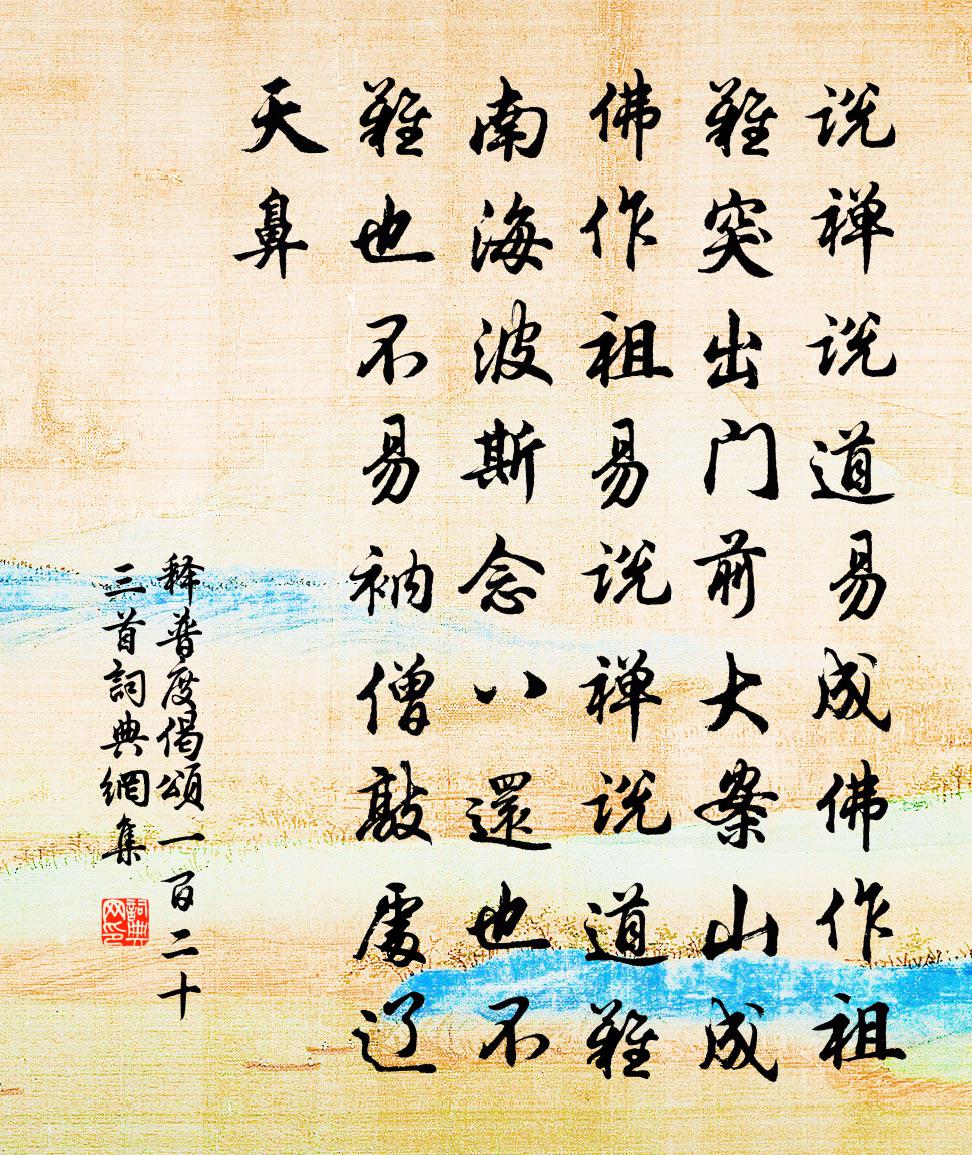 说禅说道易成佛作祖
難突出门前大案山成
佛作祖易说禅说道難
南海波斯念八還也不
難也不易衲僧敲處辽
天鼻
释普度偈頌一百二十
三首詞典網集
詞典网印